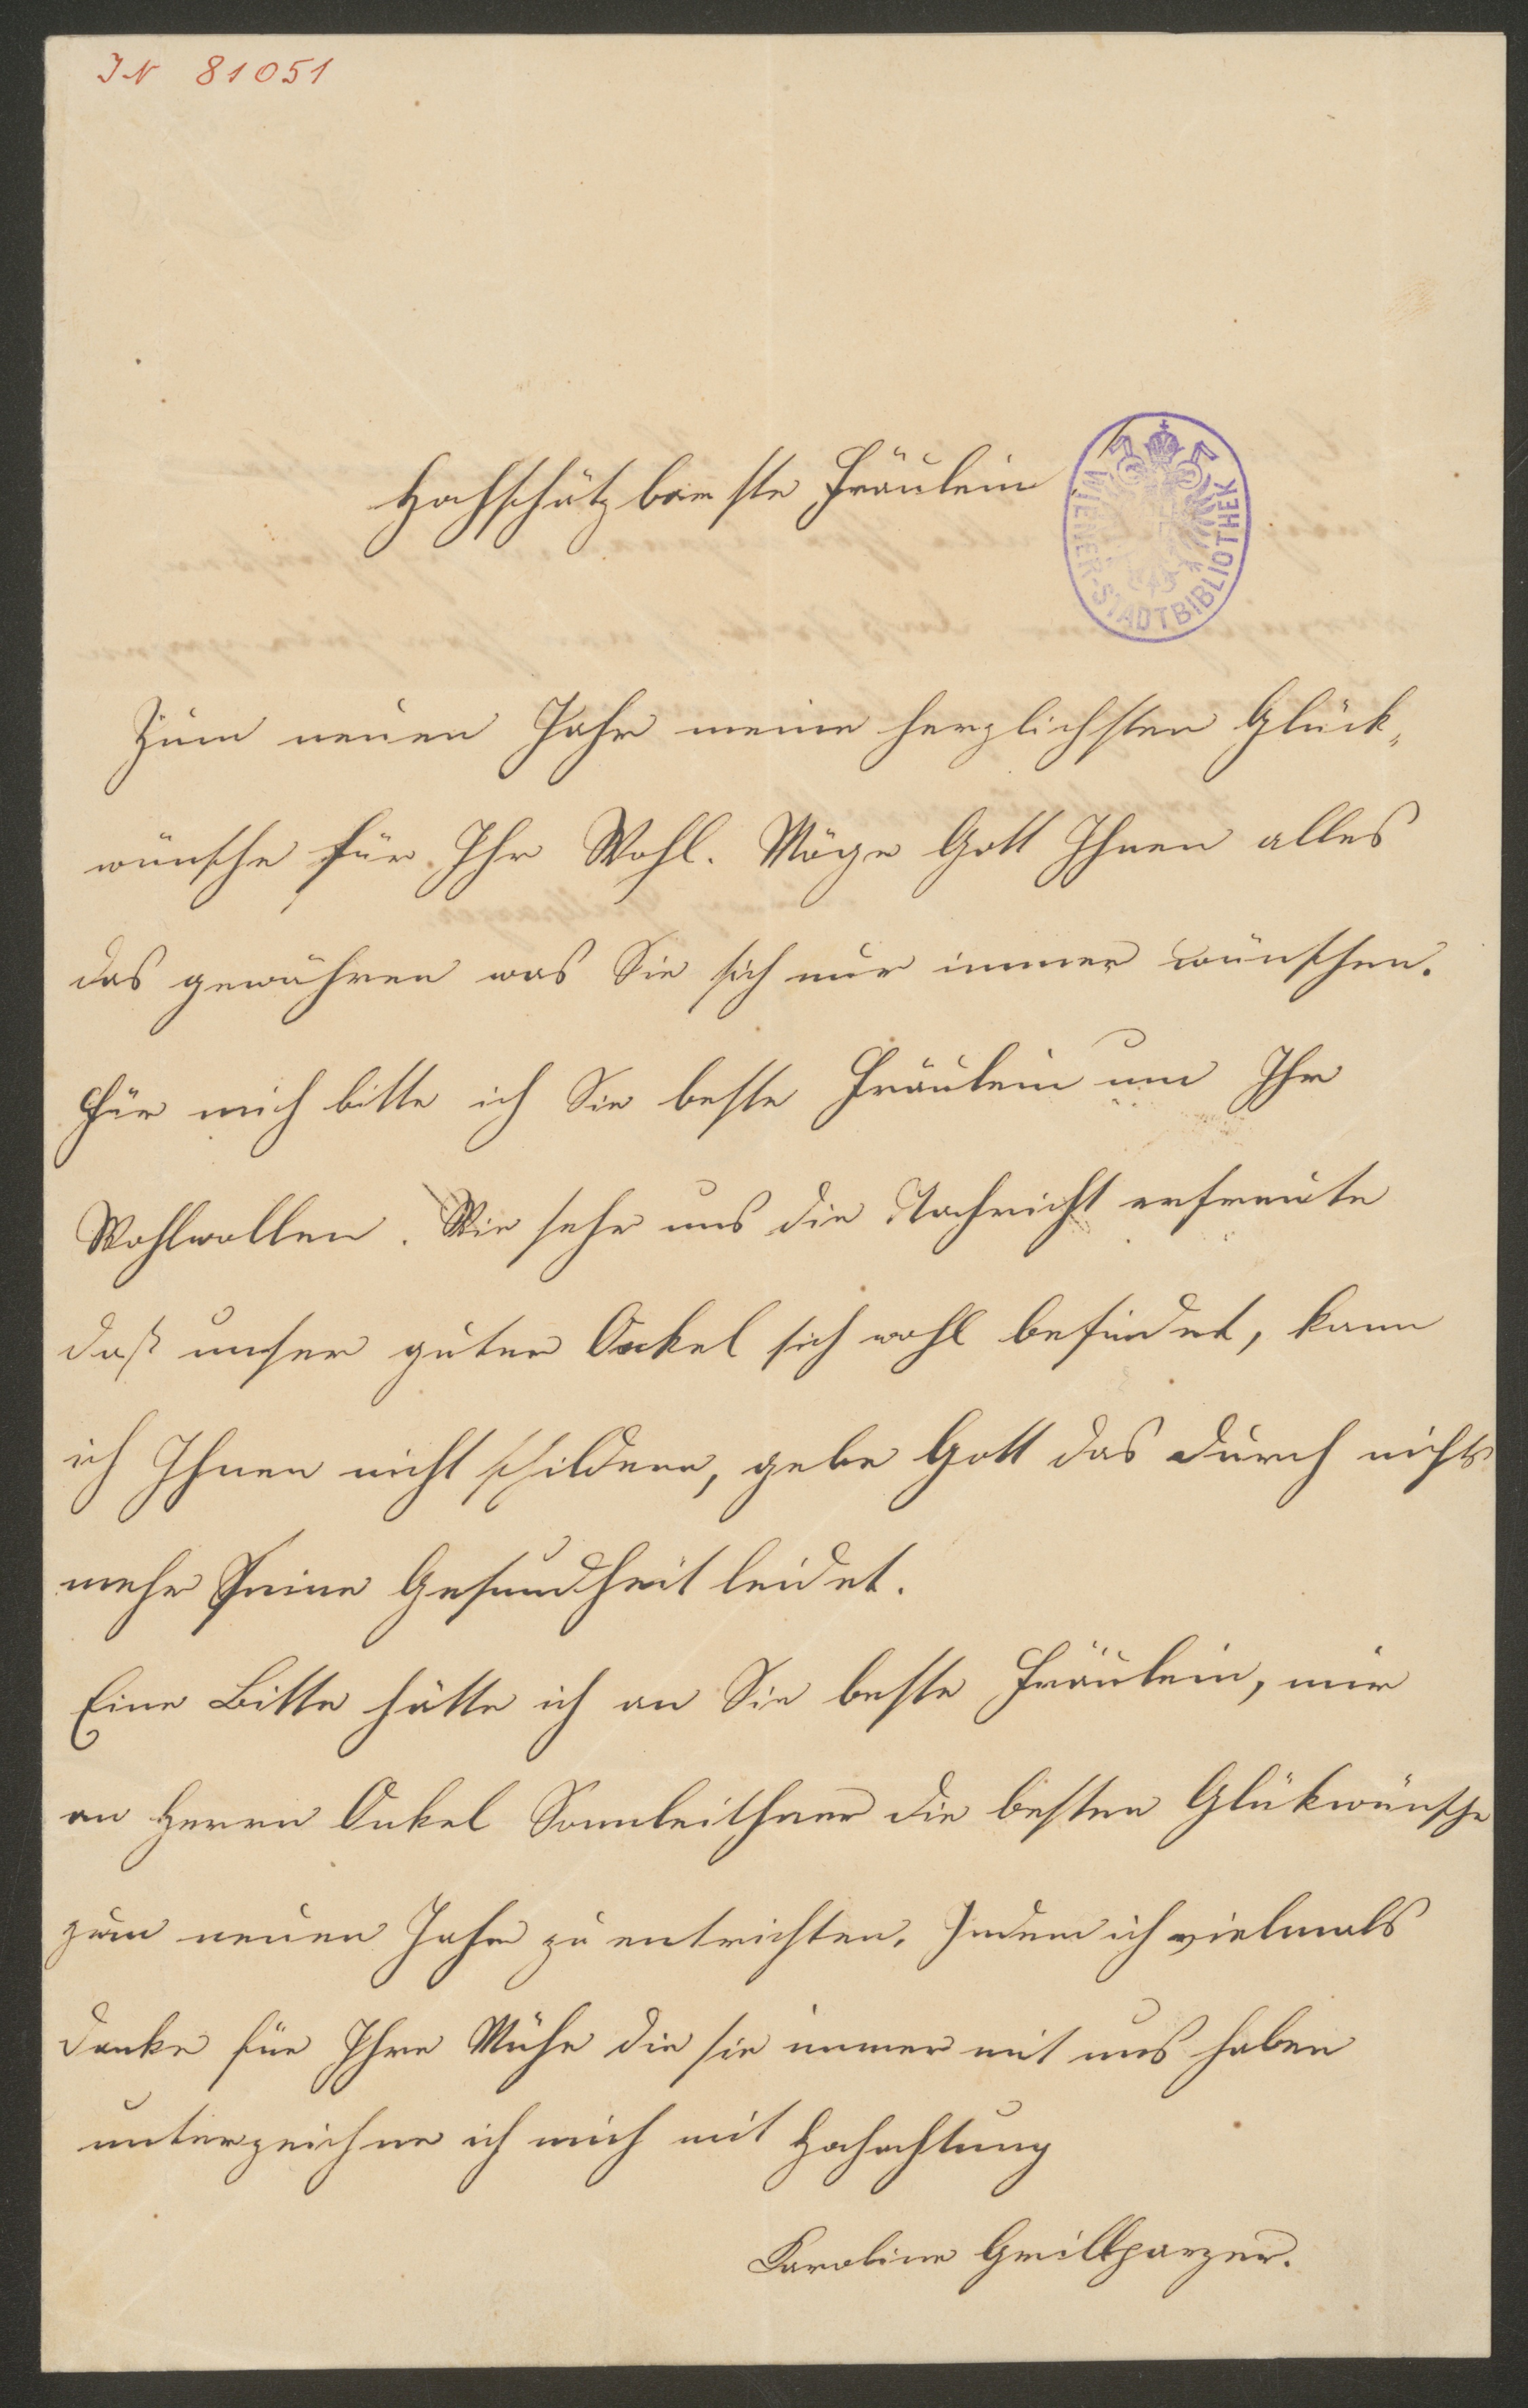 IN 81051
Hochschätzbarste Fräulein!
WIENER-STADTBIBLIOTHEK
Zum neuen Jahr meine herzlichsten Glück„
wünsche für Ihr Wohl. Möge Gott Ihnen alles
das gewähren was Sie sich nur immer wünschen.
Für mich bitte ich Sie beste Fräulein um Ihr
Wohlwollen. Wie sehr uns die Nachricht erfreute
daß unser guter Onkel sich wohl befindet, kann
ich Ihnen nicht schildern, gebe Gott das durch nichts
mehr Seine Gesundheit leidet.
Eine Bitte hätte ich an Sie beste Fräulein, mir
an Herrn Onkel Sonnleithner die besten Glükwünsche
zum neuen Jahr zu entrichten. Indem ich vielmals
danke für Ihre Mühe die sie immer mit uns haben
unterzeichne ich mich mit Hochachtung
Karoline Grillparzer.